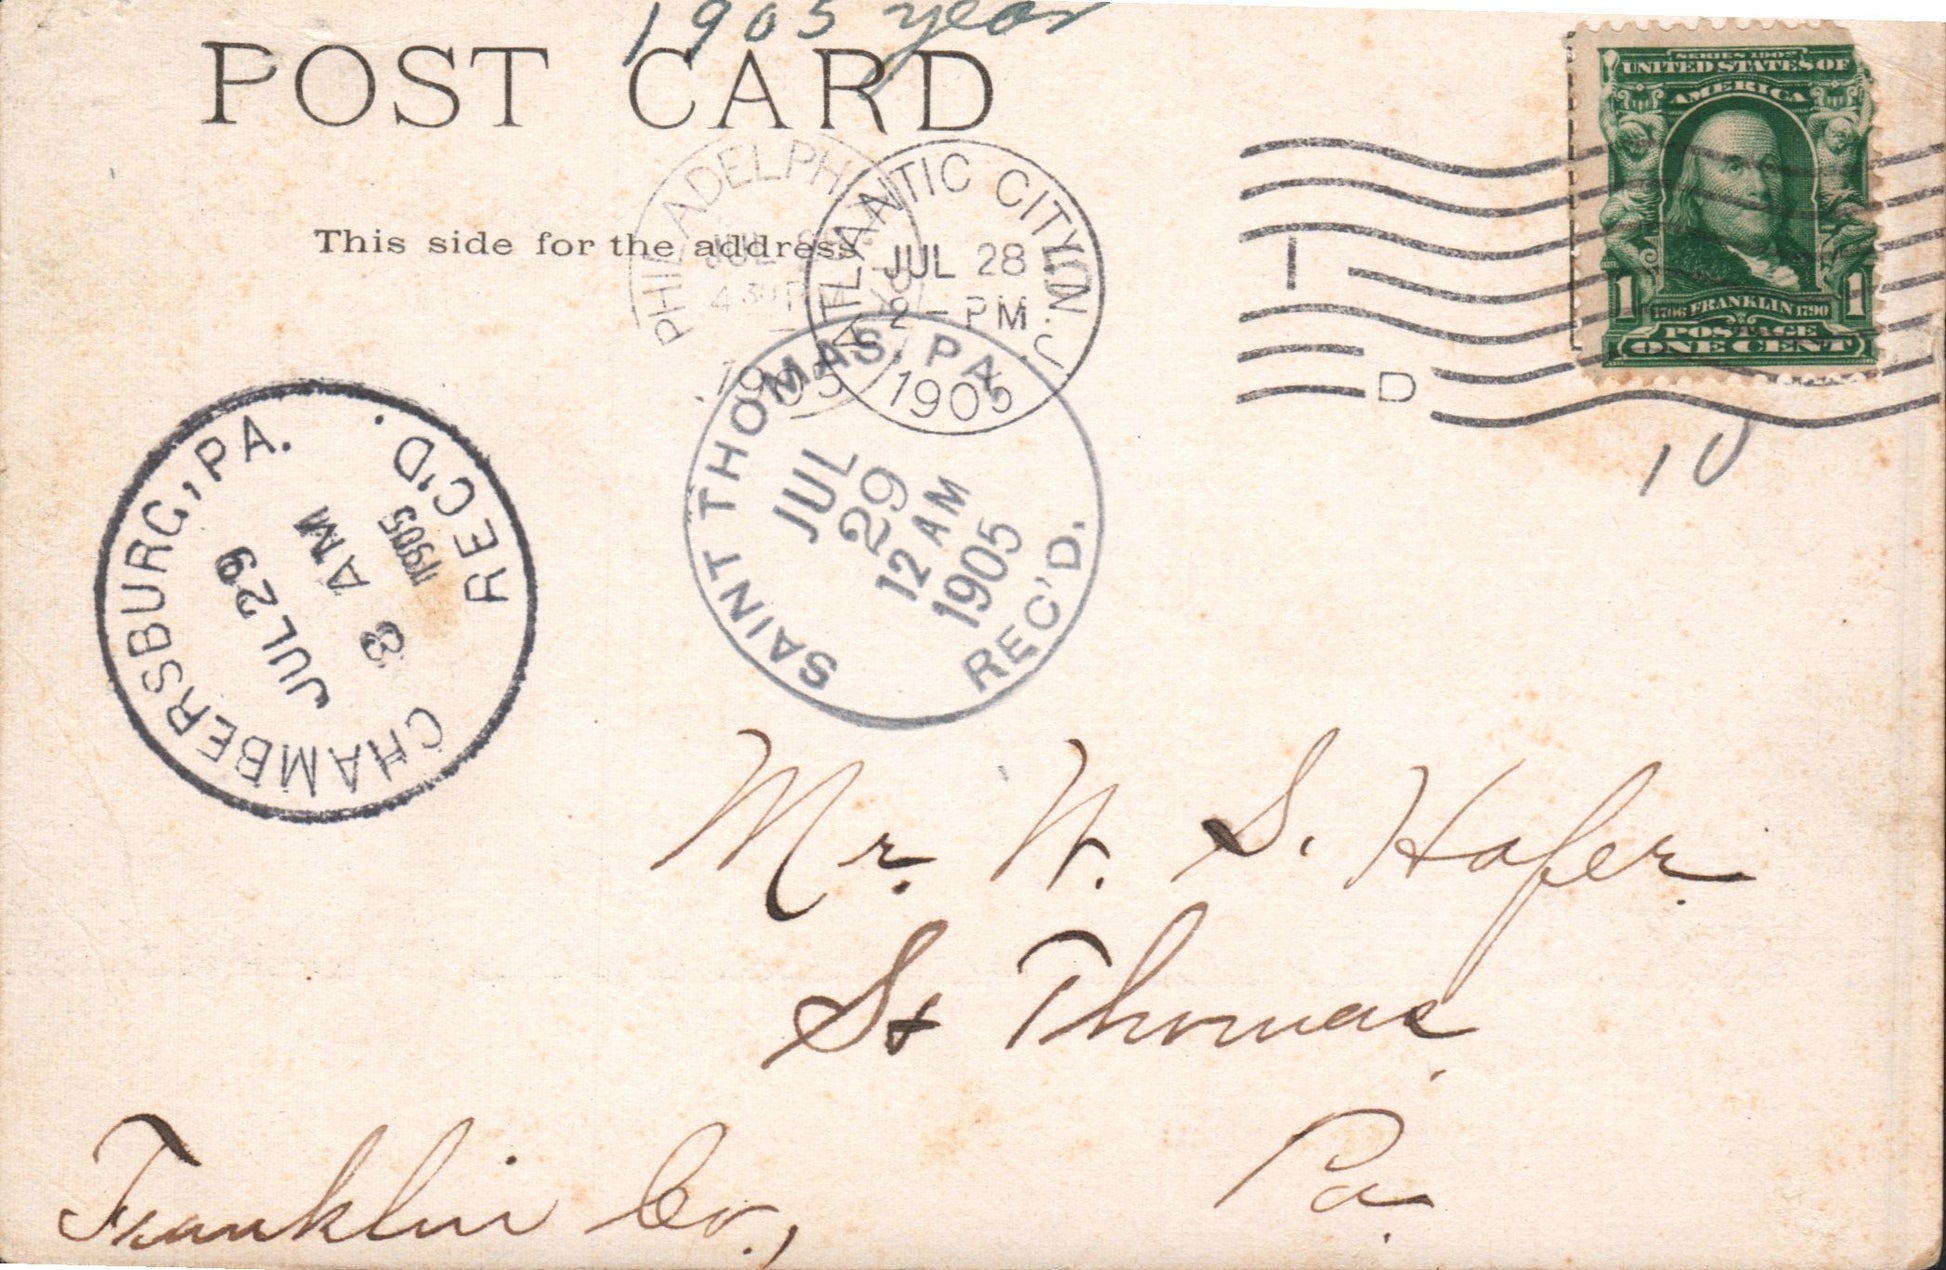 1905 year
POST CARD
This side for the address
SERIES 1902
UNITED STATES OF
AMERICA
1706 FRANKLIN 1790
1 1
POSTAGE
ONE CENT
PHILADELPHI
JUL
430 P
1905
ATLANTIC CITY, N.J.
JUL 28
2 - PM
1905
D
10
SAINT THOMAS, PA.
JUL
29
12 AM
1905
REC'D.
CHAMBERSBURG, PA.
JUL 29
8 AM
1905
REC'D.
Mr. W. S. Hafer
St Thomas
Pa.
Franklin Co.,